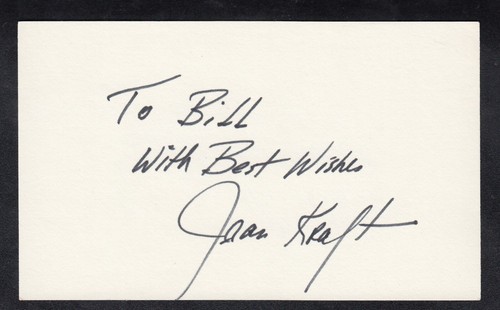 To Bill
With Best Wishes
Jaan Kraft